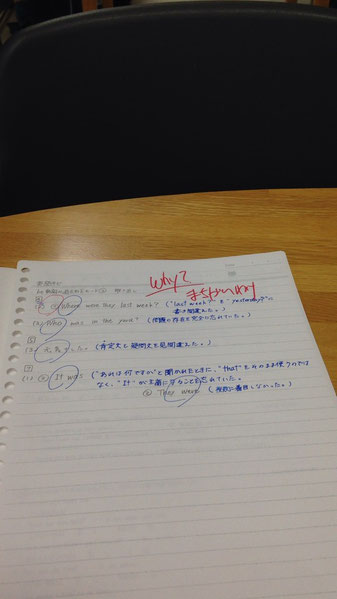 why?
まちがい
② Where were they last week? ("last week?" を "yesterday?" に
書き間違えた。)
(2) Who was in the (問題の存在を完全に忘れていた。)
た。(肯定文と疑問文を見間違えた。)
(1) ① It was ("あれは何ですか"と聞かれたときに、"that"をそのまま使うのでは
なく、"It"が主語になることを忘れていた。
② They were (複数に着目しなかった。)